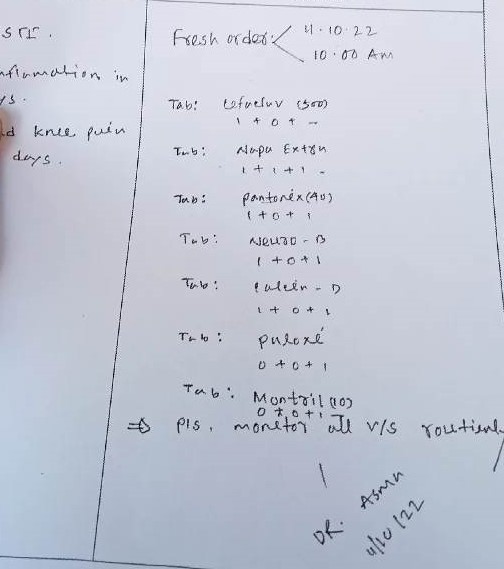 STI.
nflamation in
ys.
d knee pain
days.
Fresh order: 4.10.22
10.00 Am
Tab: (500)
1 + 0 + -
Tab: Napa Extra
1 + 1 + 1 -
Tab: pantonix (40)
1 + 0 + 1
Tab: Neuro - B
1 + 0 + 1
Tab: - D
1 + 0 + 1
Tab: puloxé
0 + 0 + 1
Tab: Montril (10)
0 + 0 + 1
⇒ Pls. monitor all v/s
DR. Asma
4/10/22